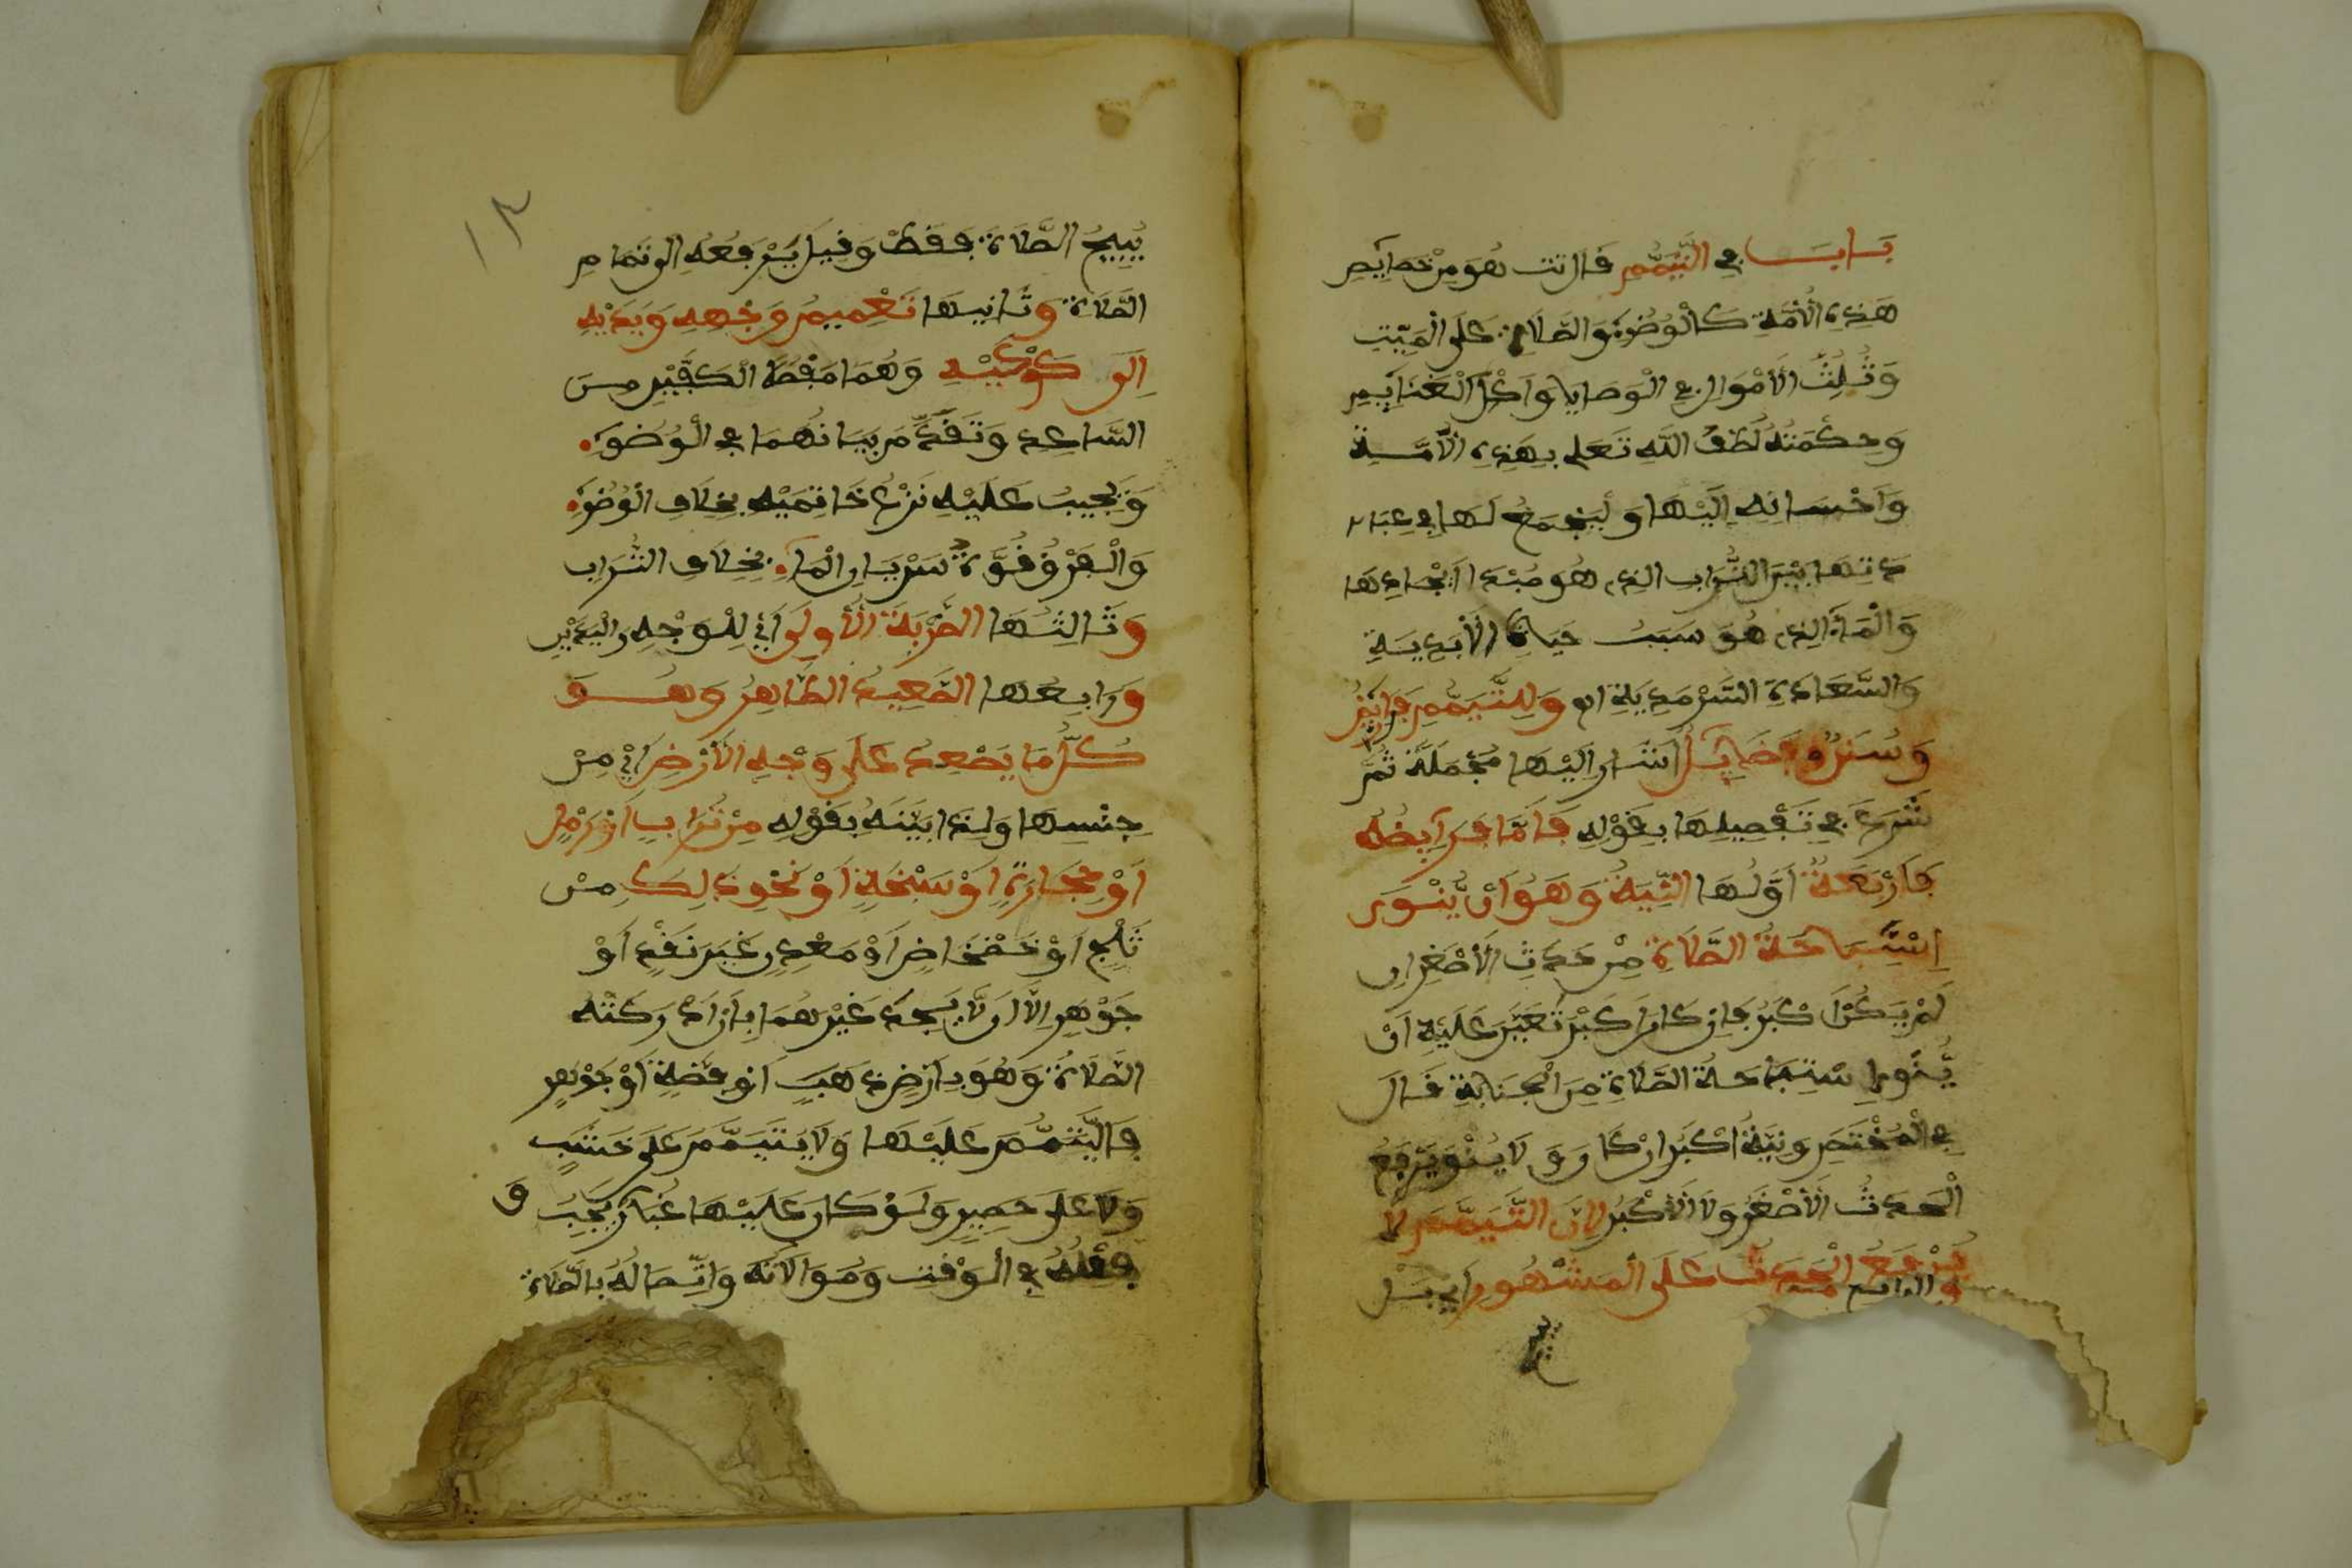 بَابٌ في التَّيَمُّمِ قَالَ تت هُوَ مِنْ خصايِصِ
هَذِهِ الْأُمَّةِ كَالْوُضُوءِ وَالصَّلَاةِ عَلَى الْمَيِّتِ
وَثُلُثُ الْأَمْوَالِ في الْوَصَايَا وَأَكْلُ الْغَنَآيِمِ
وَحِكْمَتُهُ لُطْفُ اللَّهِ تَعَلى بِهَذِهِ الْأُمَّةِ
وَاحْسَانِهِ إِلَيْهَا وَلِيَجْمَعَ لَهَا في عِبَا
دَتِهَا بَيْنَ التُّرَابِ الذِي هُوَ مَبْدَا اِيْجَادِهَا
وَالْمَآءِ الذِي هُوَ سَبَبُ حَيَاةِ الْأَبَدِيَةِ
وَالسَّعَادَةِ السَّرْمَدِيَةِ اه وَلِلتَّيَمُّمِ فَرَايِضُ
وَسُنَنٌ وَفَضَايِلُ أَشَارَ إِلَيْهَا مُجْمَلَةً ثُمَّ
شَرَعَ في تَفْصِيلِهَا بِقَوْلِهِ فَأَمَّا فَرَايِضُهُ
فَأَرْبَعَةٌ أَوَّلُهَا النِّيَةُ وَهُوَ أَنْ يَّنْوِيَ
إِسْتِبَاحَةَ الصَّلَاةِ مِنْ حَدَثِ الْأَصْغَرِ إن
لَمْ يَكُنْ أَكْبَرُ فإن كَانَ أَكْبَرُ تَعَيَّنَ عَلَيْهِ أَنْ
يَّنْوِيَ اِسْتِبَاحَةَ الصَّلَاةِ مِنَ الْجَنَابَةِ قَالَ
في الْمُخْتَصَرِ وَنِيَّةُ أَكْبَرَ إنْ كَانَ وَلَا يَنْوِي رَفْعَ
الْحَدَثِ الْأَصْغَرِ وَلَا الْأَكْبَرِ لِأَنَّ التَّيَمُّمَ لَا
يَرْفَعُ الْحَدَثَ عَلَى الْمَشْهُورِ أَيْ بَلْ
يُبِيحُ الصَّلَاةَ فَقَطْ وَقِيلَ يَرْفَعُهُ إِلَى تَمَامِ
الصَّلَاةِ وَثَانِيهَا تَعْمِيمُ وَجْهِهِ وَيَدَيْهِ
إِلَى كُوعَيْهِ وَهُمَا مَفْصِلَا الْكَفَّيْنِ مِنَ
السَّاعِدِ وَتَقَدَّمَ بَيَانُهُمَا في الْوُضُوءِ
وَيَجِبُ عَلَيْهِ نَزْعُ خَاتِمَيْهِ بِخِلَافِ الْوُضُوءِ
وَالْفَرْقُ قُوَّةُ سَرْيَانِ الْمَاءِ بِخِلَافِ التُّرَابِ
وَثَالِثُهَا الضَّرْبَةُ الْأُولَى أَيْ لِلْوَجْهِ وَالْيَدَيْنِ
وَرَابِعُهَا الصَّعِيدُ الطَّاهِرُ وَهُوَ
كُلُّ مَا يَصْعَدُ عَلَى وَجْهِ الْأَرْضِ أَيْ مِنْ
جِنْسِهَا وَلِذَا بَيَّنَهُ بِقَوْلِهِ مِنْ تُرَابٍ أَوْ رَمْلٍ
أَوْ حِجَارَةٍ أَوْ سَبْخَةٍ أَوْ نَحْوِ ذَلِكَ مِنْ
ثَلْجٍ أَوْ خَضْخَاضٍ أَوْ مَعْدِنٍ غَيْرَ نَقْدٍ أَوْ
جَوْهَرٍ إِلَّا أَن لَّا يَجِدَ غَيْرَهُمَا بِأَنْ أَدْرَكَتْهُ
الصَّلَاةُ وَهُوَ بِأَرْضِ ذَهَبٍ أَوْ فِضَّةٍ أَوْ جَوْهَرٍ
فَالْيَتَيَمَّمْ عَلَيْهَا وَلَا يَتَيَمَّمُ عَلَى خَشَبٍ
وَلَا عَلَى حَصِيرٍ وَلَوْ كَانَ عَلَيْهَا غُبَارٌ يَجِبُ وَ
فِعْلُهُ في الْوَقْتِ وَمُوَالَاتُهُ وَاتِّصَالُهُ بِالصَّلَاةِ